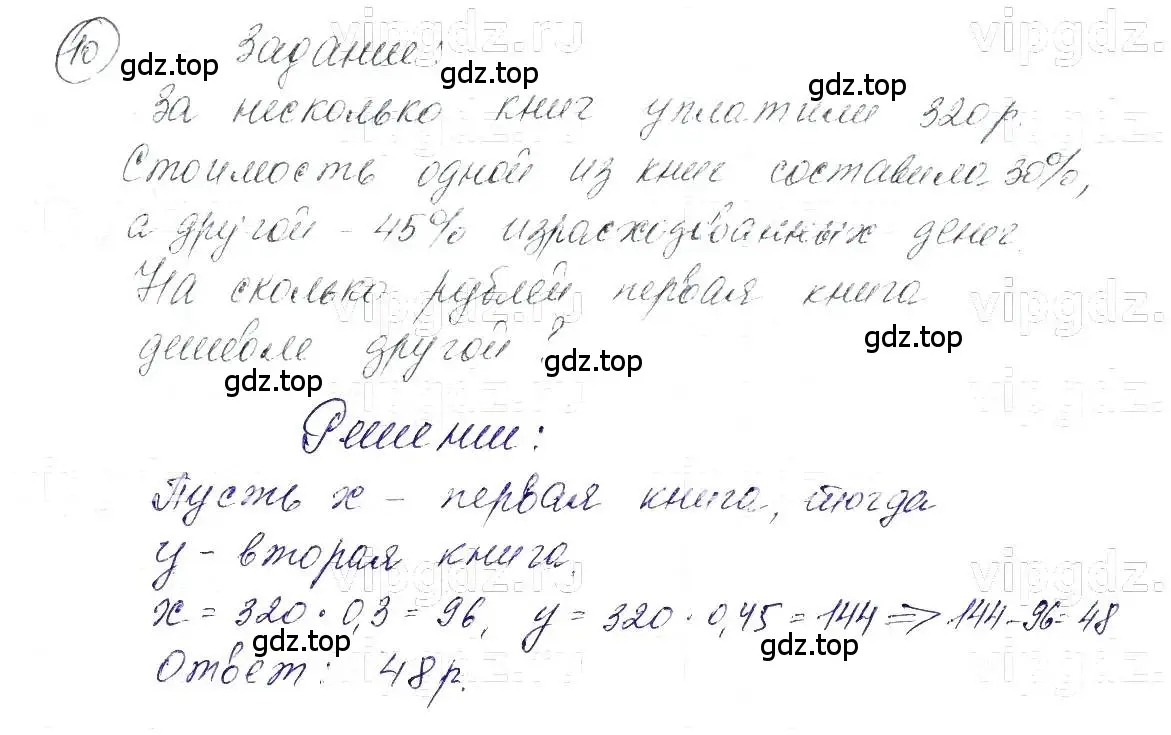 10 Задание:
За несколько книг уплатили 320 р.
Стоимость одной из книг составила 30%,
а другой - 45% израсходованных денег.
На сколько рублей первая книга
дешевле другой?
Решение:
Пусть x - первая книга, тогда
y - вторая книга.
x = 320 · 0,3 = 96, y = 320 · 0,45 = 144 => 144 - 96 = 48
Ответ: 48 р.
gdz.top
gdz.top
gdz.top
gdz.top
gdz.top
gdz.top
gdz.top
gdz.top
vipgdz.ru
vipgdz.
vipgdz.ru
vipgdz.
vipgdz.ru
vipgdz.